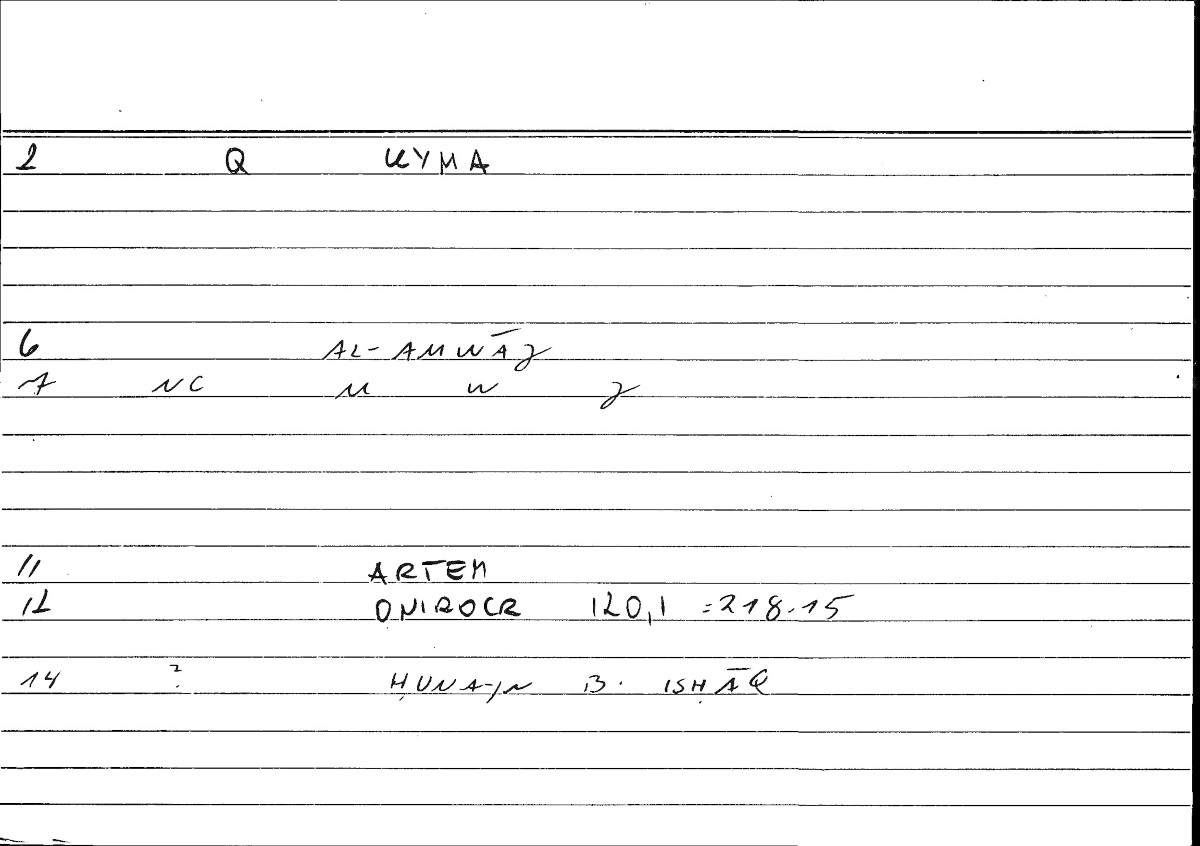 2 Q KYMA
6 AL-AMWĀJ
7 NC M W J
11 ARTEM
12 ONIROCR 120,1 =218.15
14 ? ḤUNAYN B. ISḤĀQ